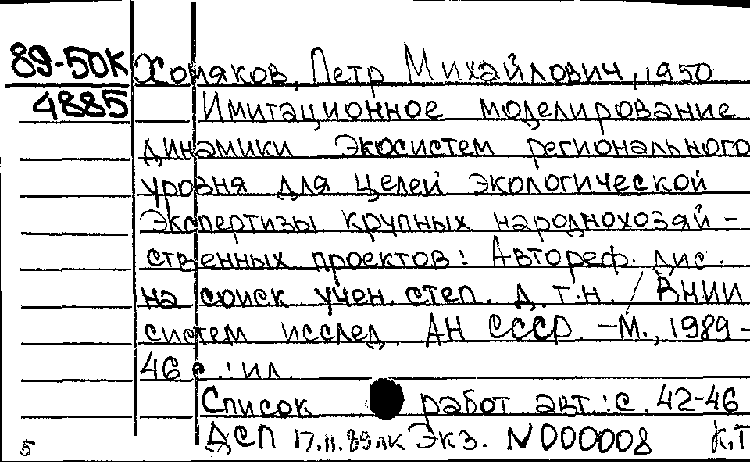 89-50К Хомяков, Петр Михайлович, 1950
4885 Имитационное моделирование
динамики экосистем регионального
уровня для целей экологической
экспертизы крупных народнохозяй-
ственных проектов: Автореф. дис.
на соиск. учен. степ. д. т.н. / ВНИИ
систем исслед. АН СССР. -М., 1989-
46 с.: ил.
Список работ авт.: с. 42-46
5 ДСП 17.11.89 Экз. N000008 К.Т